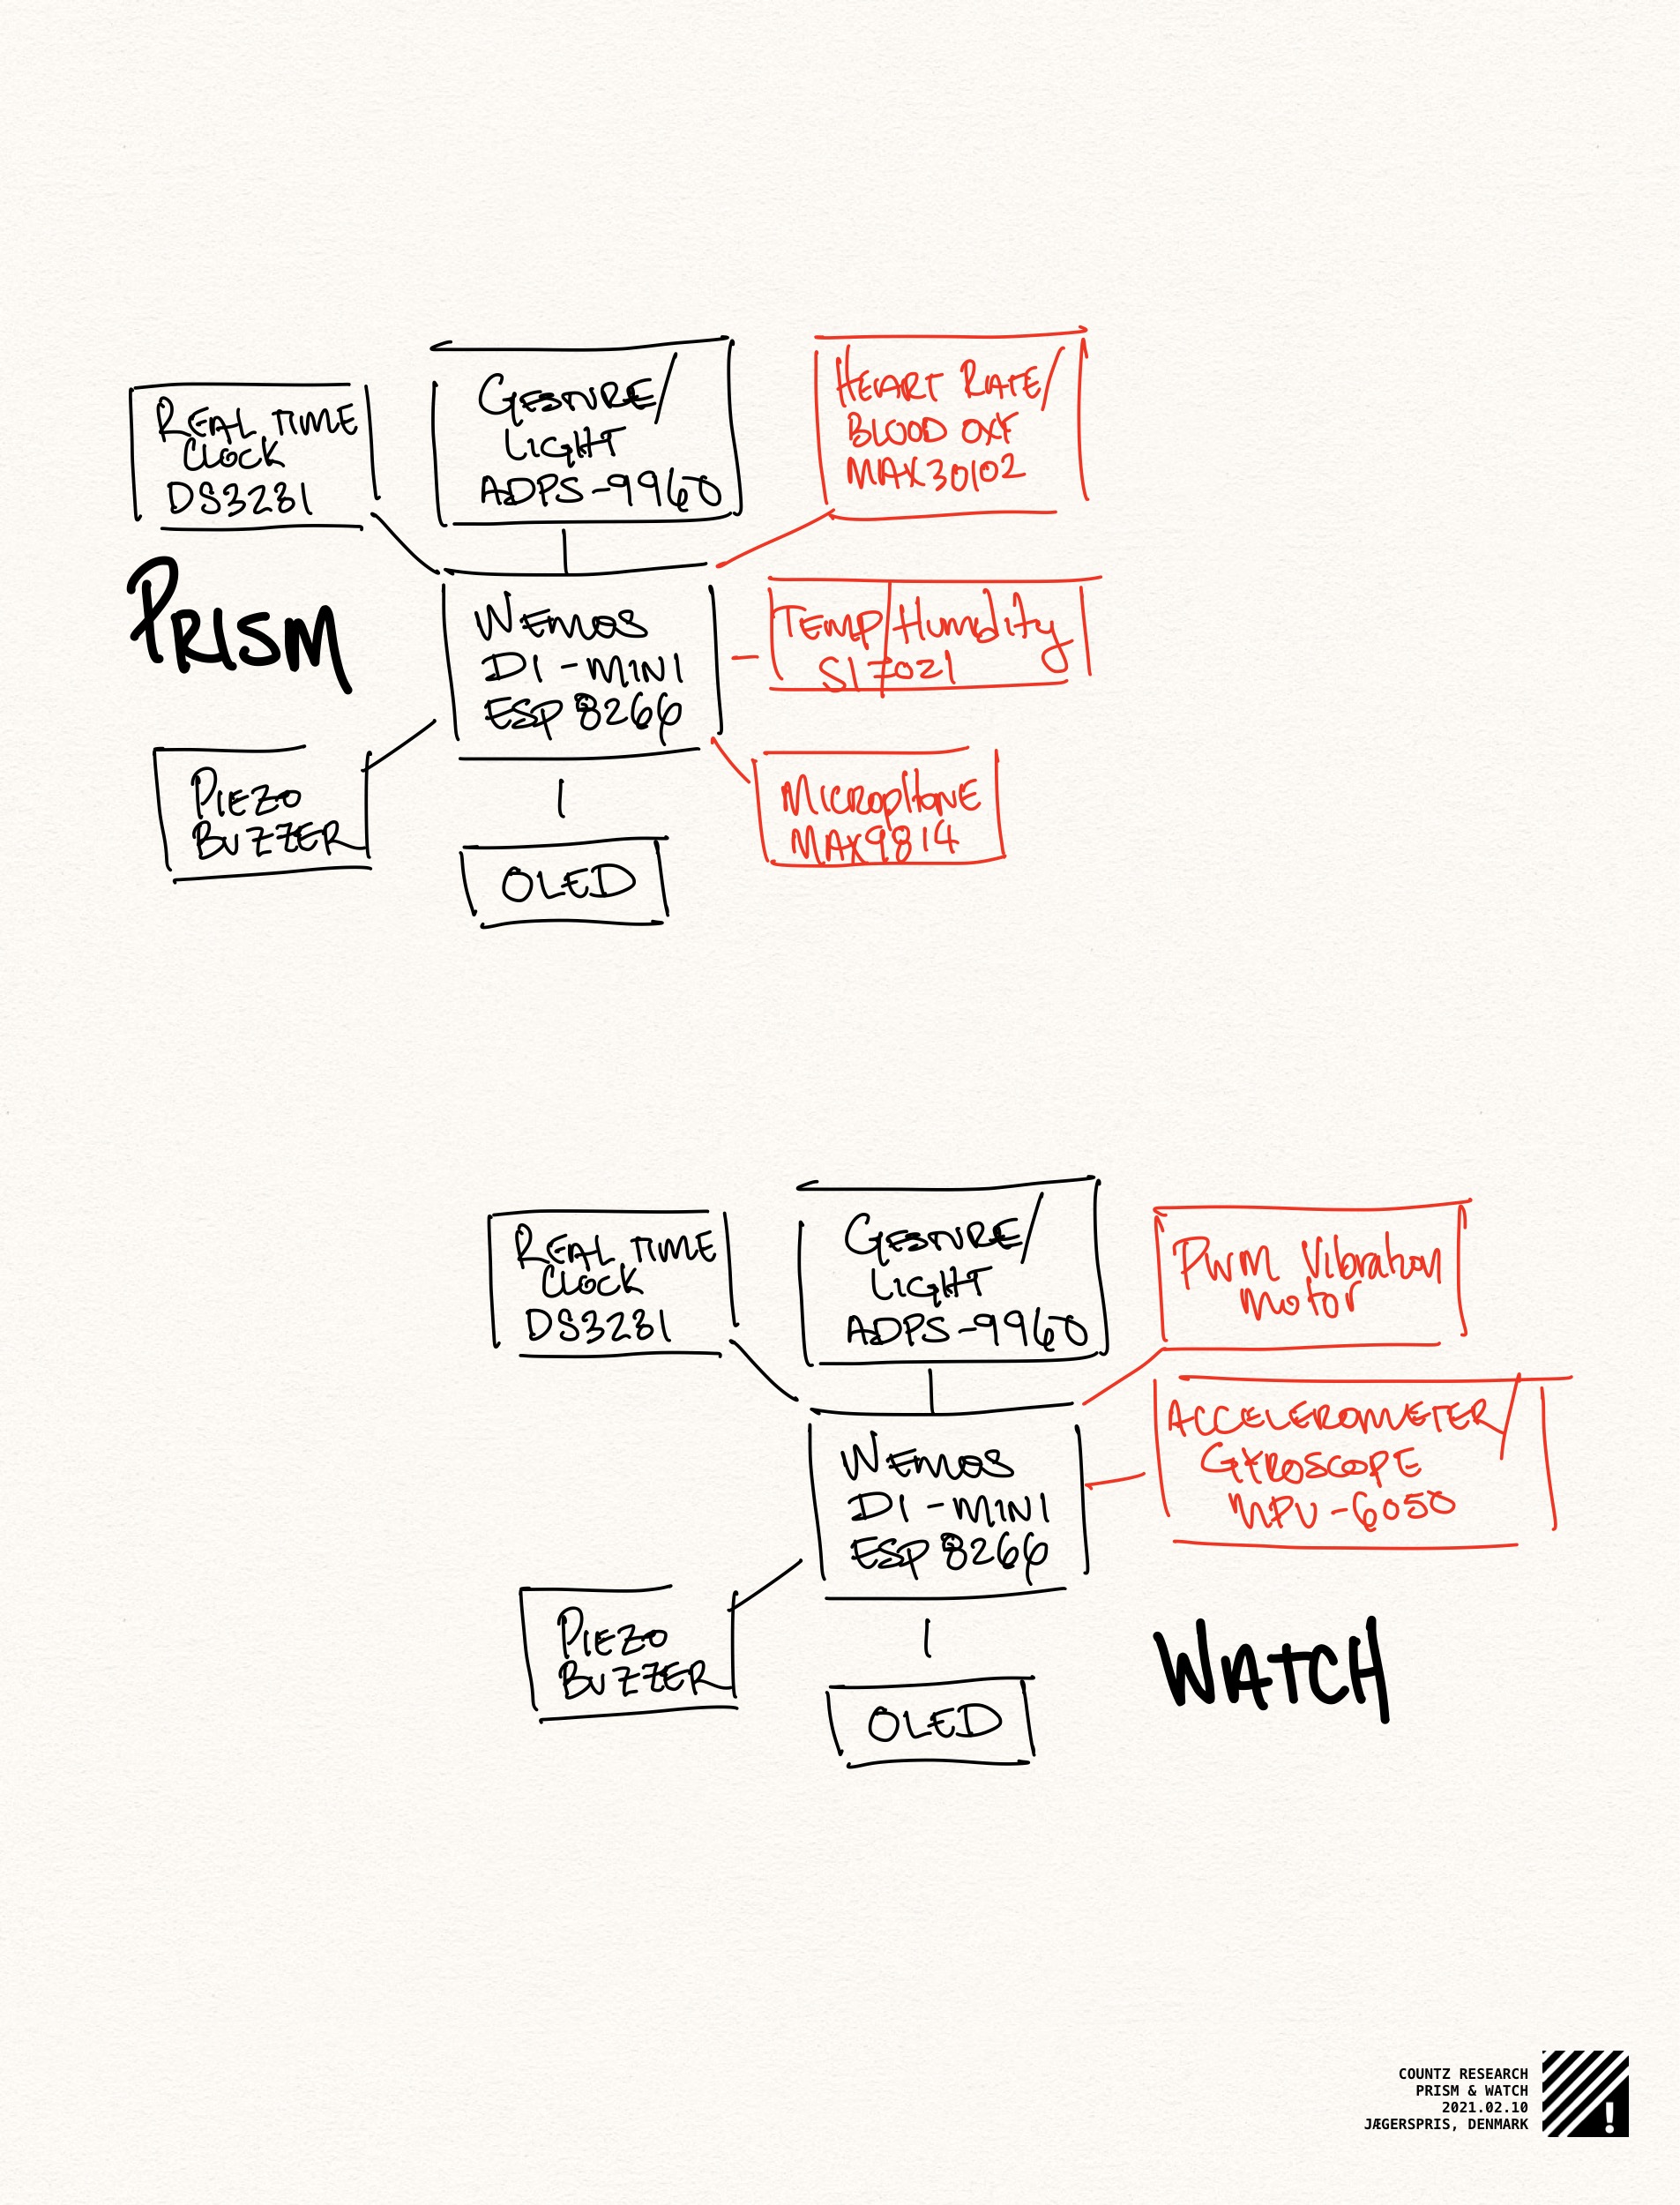 REAL TIME
CLOCK
DS3231
GESTURE/
LIGHT
ADPS-9960
HEART RATE/
BLOOD OXY
MAX30102
PRISM
WEMOS
D1-MINI
ESP8266
TEMP/Humdity
SI7021
PIEZO
BUZZER
MICROPHONE
MAX9814
OLED
REAL TIME
CLOCK
DS3231
GESTURE/
LIGHT
ADPS-9960
PWM Vibration
motor
WEMOS
D1-MINI
ESP8266
ACCELEROMETER/
GYROSCOPE
MPU-6050
PIEZO
BUZZER
OLED
WATCH
COUNTZ RESEARCH
PRISM & WATCH
2021.02.10
JÆGERSPRIS, DENMARK
!